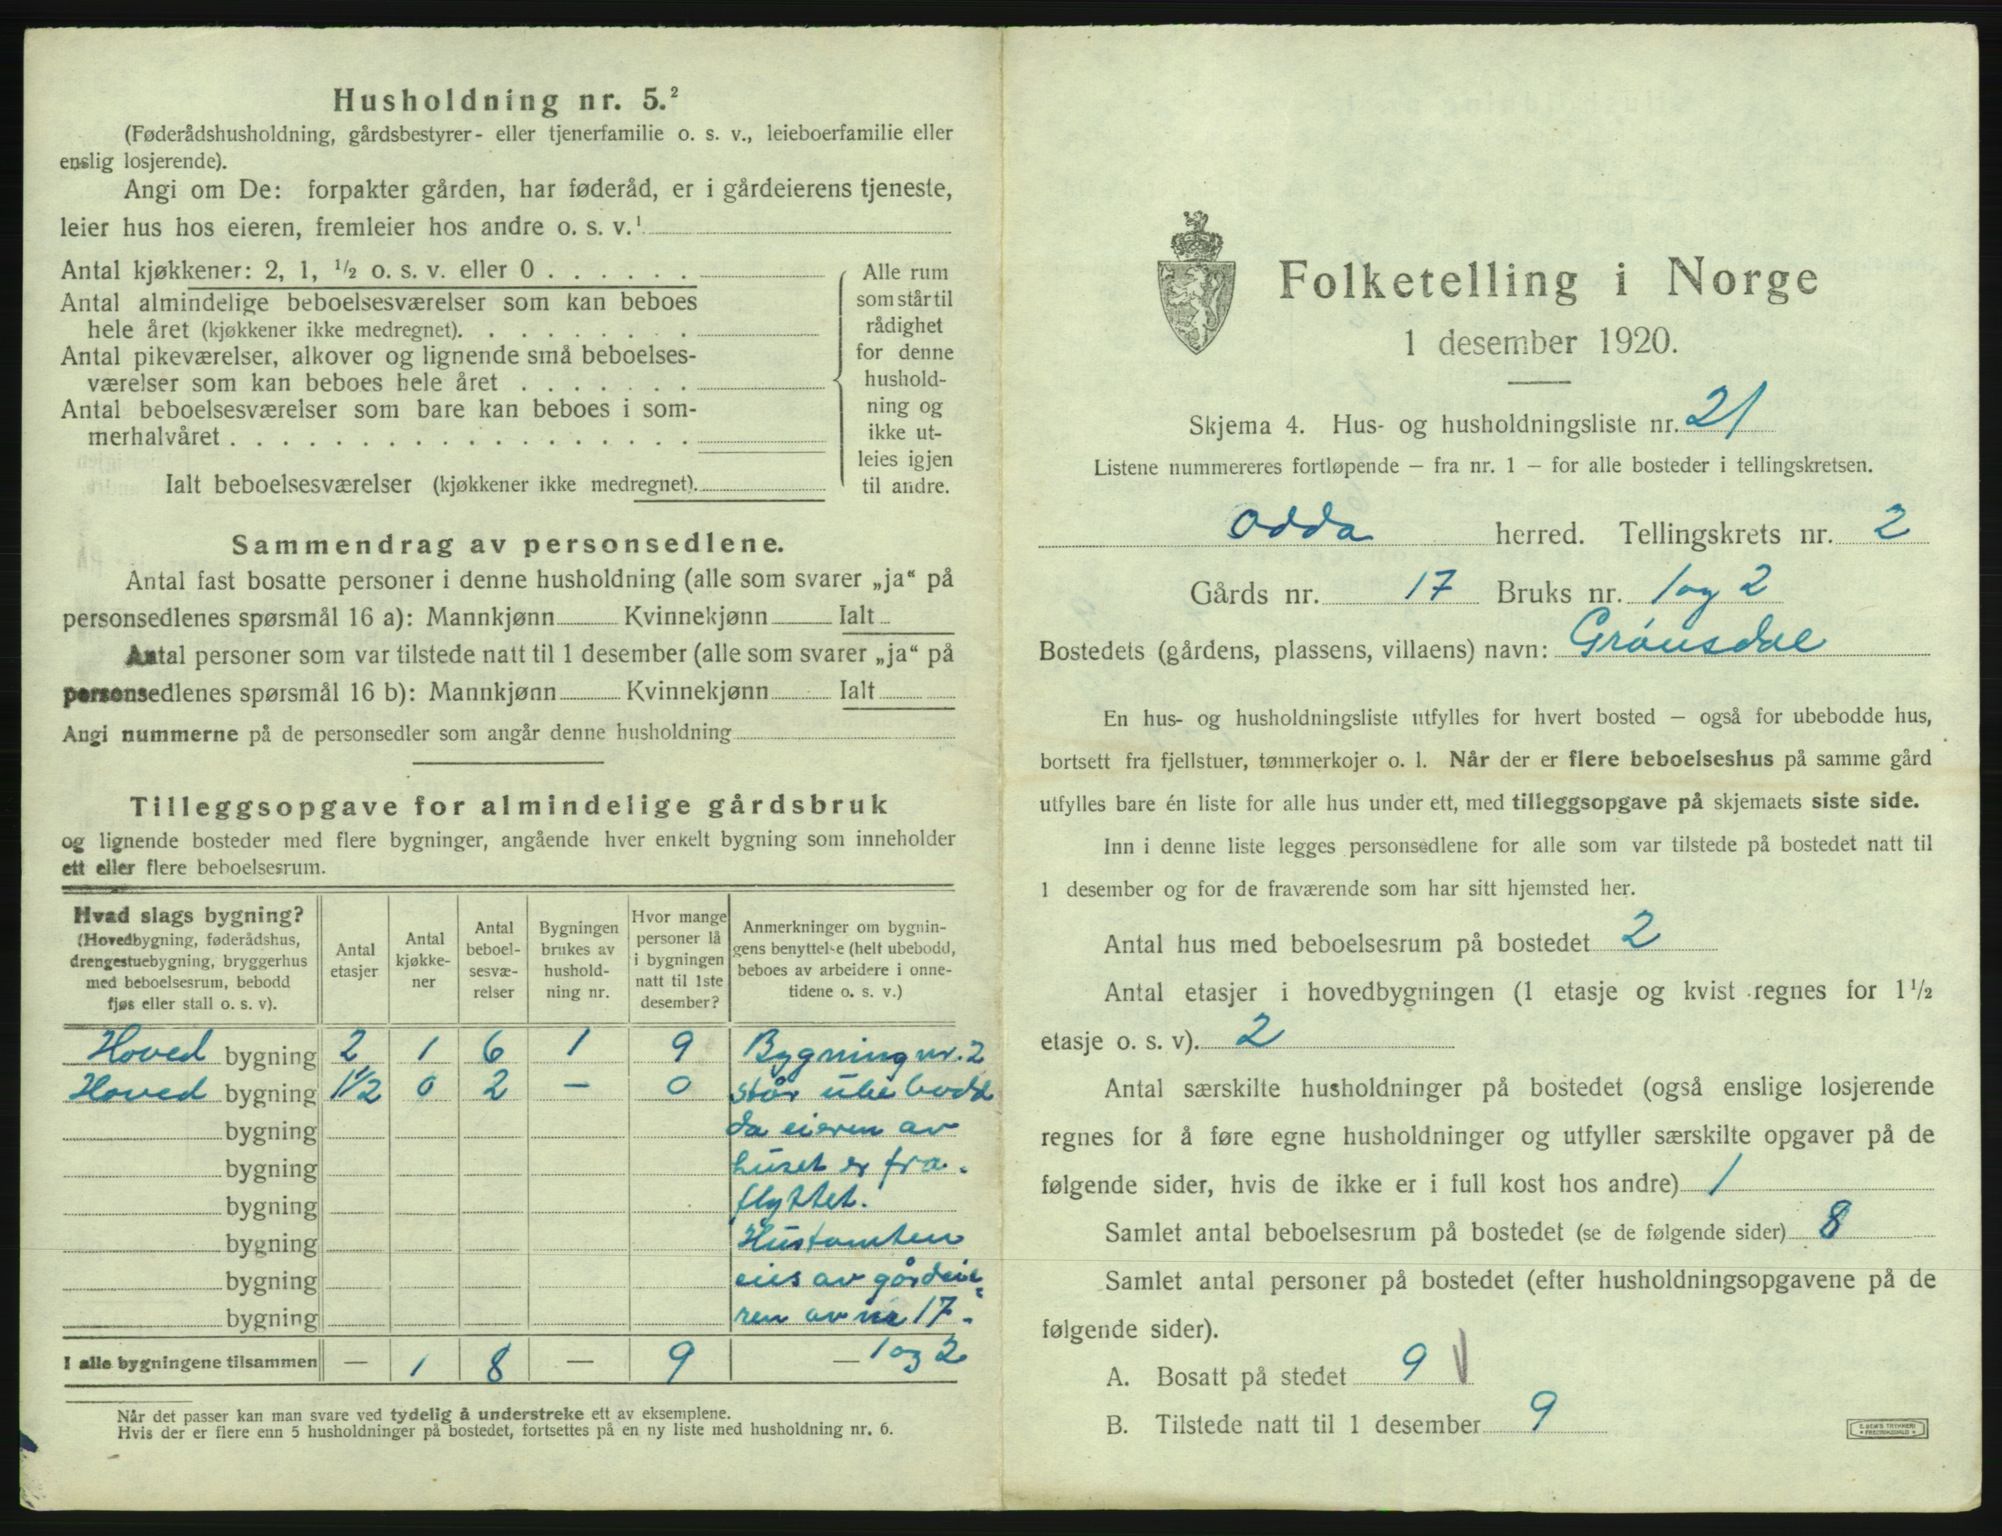 Husholdning nr. 5.²
(Føderådshusholdning, gårdsbestyrer- eller tjenerfamilie o. s. v., leieboerfamilie eller
enslig losjerende).
Angi om De: forpakter gården, har føderåd, er i gårdeierens tjeneste,
leier hus hos eieren, fremleier hos andre o. s. v.¹
Antal kjøkkener: 2, 1, ½ o. s. v. eller 0 . . . . . .
Antal almindelige beboelsesværelser som kan beboes
hele året (kjøkkener ikke medregnet). . . . . . . . .
Antal pikeværelser, alkover og lignende små beboelses-
værelser som kan beboes hele året . . . . . . .
Antal beboelsesværelser som bare kan beboes i som-
merhalvåret . . . . . . . . . . . . . . . . . .
Ialt beboelsesværelser (kjøkkener ikke medregnet).
Alle rum
som står til
rådighet
for denne
hushold-
ning og
ikke ut-
leies igjen
til andre.
Sammendrag av personsedlene.
Antal fast bosatte personer i denne husholdning (alle som svarer „ja“ på
personsedlenes spørsmål 16 a): Mannkjønn Kvinnekjønn Ialt
Antal personer som var tilstede natt til 1 desember (alle som svarer „ja“ på
personsedlenes spørsmål 16 b): Mannkjønn Kvinnekjønn Ialt
Angi nummerne på de personsedler som angår denne husholdning
Tilleggsopgave for almindelige gårdsbruk
og lignende bosteder med flere bygninger, angående hver enkelt bygning som inneholder
ett eller flere beboelsesrum.
Hvad slags bygning?
(Hovedbygning, føderådshus,
drengestuebygning, bryggerhus
med beboelsesrum, bebodd
fjøs eller stall o. s. v).
Antal
etasjer
Antal
kjøkke-
ner
Antal
beboel-
sesvæ-
relser
Bygningen
brukes av
hushold-
ning nr.
Hvor mange
personer lå
i bygningen
natt til 1ste
desember?
Anmerkninger om bygnin-
gens benyttelse (helt ubebodd,
beboes av arbeidere i onne-
tidene o. s. v.)
Hoved bygning 2 1 6 1 9 Bygning nr. 2
Hoved bygning 1½ 0 2 — 0 står ubebodd
bygning da eieren av
bygning huset er fra-
bygning flyttet.
bygning Hustomten
bygning eies av gårdeie-
bygning ren av nr 17.
I alle bygningene tilsammen — 1 8 — 9 — 1 og 2
Når det passer kan man svare ved tydelig å understreke ett av eksemplene.
Hvis der er flere enn 5 husholdninger på bostedet, fortsettes på en ny liste med husholdning nr. 6.
Folketelling i Norge
1 desember 1920.
Skjema 4. Hus- og husholdningsliste nr. 21
Listene nummereres fortløpende – fra nr. 1 – for alle bosteder i tellingskretsen.
Odda herred. Tellingskrets nr. 2
Gårds nr. 17 Bruks nr. 1 og 2
Bostedets (gårdens, plassens, villaens) navn: Grønsdal
En hus- og husholdningsliste utfylles for hvert bosted – også for ubebodde hus,
bortsett fra fjellstuer, tømmerkojer o. l. Når der er flere beboelseshus på samme gård
utfylles bare én liste for alle hus under ett, med tilleggsopgave på skjemaets siste side.
Inn i denne liste legges personsedlene for alle som var tilstede på bostedet natt til
1 desember og for de fraværende som har sitt hjemsted her.
Antal hus med beboelsesrum på bostedet 2
Antal etasjer i hovedbygningen (1 etasje og kvist regnes for 1½
etasje o. s. v). 2
Antal særskilte husholdninger på bostedet (også enslige losjerende
regnes for å føre egne husholdninger og utfyller særskilte opgaver på de
følgende sider, hvis de ikke er i full kost hos andre) 1
Samlet antal beboelsesrum på bostedet (se de følgende sider) 8
Samlet antal personer på bostedet (efter husholdningsopgavene på de
følgende sider).
A. Bosatt på stedet 9
B. Tilstede natt til 1 desember 9